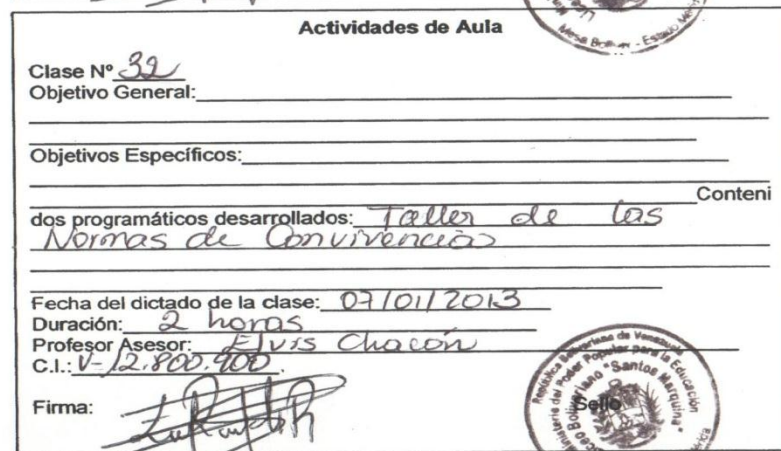 Mesa Bolívar - Estado
Actividades de Aula
Clase Nº 32
Objetivo General:
Objetivos Específicos:
Conteni
dos programáticos desarrollados: Taller de las
Normas de Convivencias
Fecha del dictado de la clase: 07/01/2013
Duración: 2 horas
Profesor Asesor: Elvis Chacón
C.I.: V-12.800.900.
Firma:
Sello
República Bolivariana de Venezuela
Ministerio del Poder Popular para la Educación
Liceo Bolivariano "Santos Marquina"